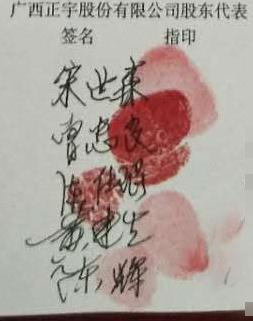 广西正宇股份有限公司股东代表
签名 指印
宋世
曾忠良
陈
黄建生
陈辉